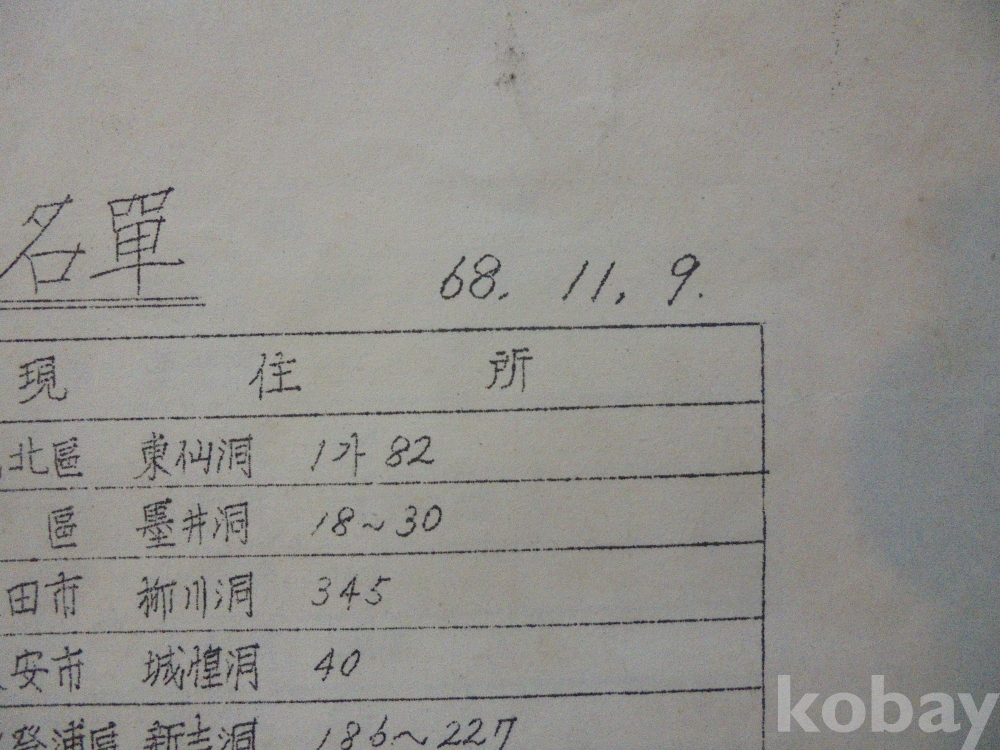 名單
68. 11. 9.
現 住 所
北區 東仙洞 1가 82
區 墨井洞 18~30
田市 柳川洞 345
安市 城惶洞 40
登浦區 新吉洞 186~227
kobay